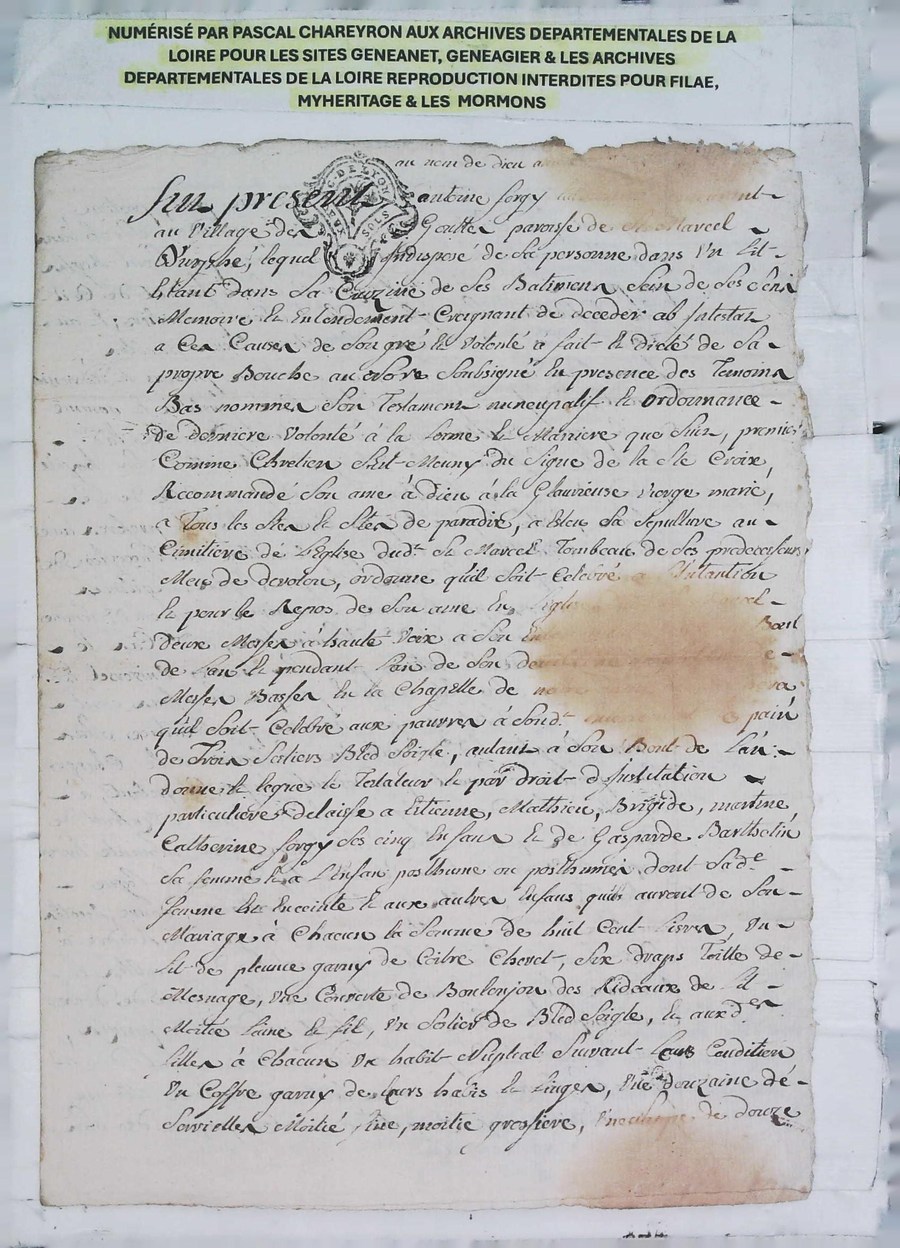 NUMÉRISÉ PAR PASCAL CHAREYRON AUX ARCHIVES DEPARTEMENTALES DE LA
LOIRE POUR LES SITES GENEANET, GENEAGIER & LES ARCHIVES
DEPARTEMENTALES DE LA LOIRE REPRODUCTION INTERDITES POUR FILAE,
MYHERITAGE & LES MORMONS
au nom de dieu
Fut present antoine forgy
au Village des Gouttes paroisse de St Marcel
D'urphé, lequel Indisposé de sa personne dans Un Lit
Etant dans sa Cuizine de ses Batimens Sain de ses séns
Memoire et Entendement Creignant de deceder ab Intestat
a Ces Causes de Son gré et Volonté a fait et dicté de Sa
propre Bouche au Soubsigné En presence des Temoins
Bas nommes Son Testament nuncupatif et ordonnance
de derniere Volonté à la forme et Maniere que Suit, premier
Comme Chretien S'est Meuny du Signe de la Ste Croix,
Recommandé Son ame à Dieu à la Glourieuse Vierge marie,
a Tous les Sts et Stes de paradis, a Eleu Sa Sepulture au
Cimitiere de L'Eglise dudt St Marcel Tombeau de Ses predecesseurs
Meu de devotion, ordonne qu'il Soit Celebré a Intantion
et pour le Repos de Son ame En
deux Messes à haute Voix a Son Bout
de L'an et pendant L'an de Son
Messes Basses En la Chapelle de
qu'il Soit Celebré aux pauvres à Sondt pain
de Trois Setiers Bled Seigle, autant à Son Bout de L'an
donne et legue le Testateur et par droit d'Institution
particuliere delaisse a Etienne, Mathieu, Brigide, martine
Catherine forgy Ses cinq Enfans Et de Gasparde Bartholin
Sa femme et a L'Enfan posthume ou posthumes dont Sade
femme Est Enceinte et aux autres Enfans quils auront de Son
Mariage à Chacun la Somme de huit Cent Livres, Un
Lit de plume garny de Coitre Chevet, Six draps Toille de
Mesnage, Une Couverte de des Rideaux de
Moitié Laine et fil, Un Setier de Bled Seigle, Et aux des
filles à Chacun Un habit Nuptial Suivant Leurs Condition
Un Coffre garny de Leurs habis et Linges, Une douzaine de
Serviettes Moitié fine, moitie grossiere, de douze